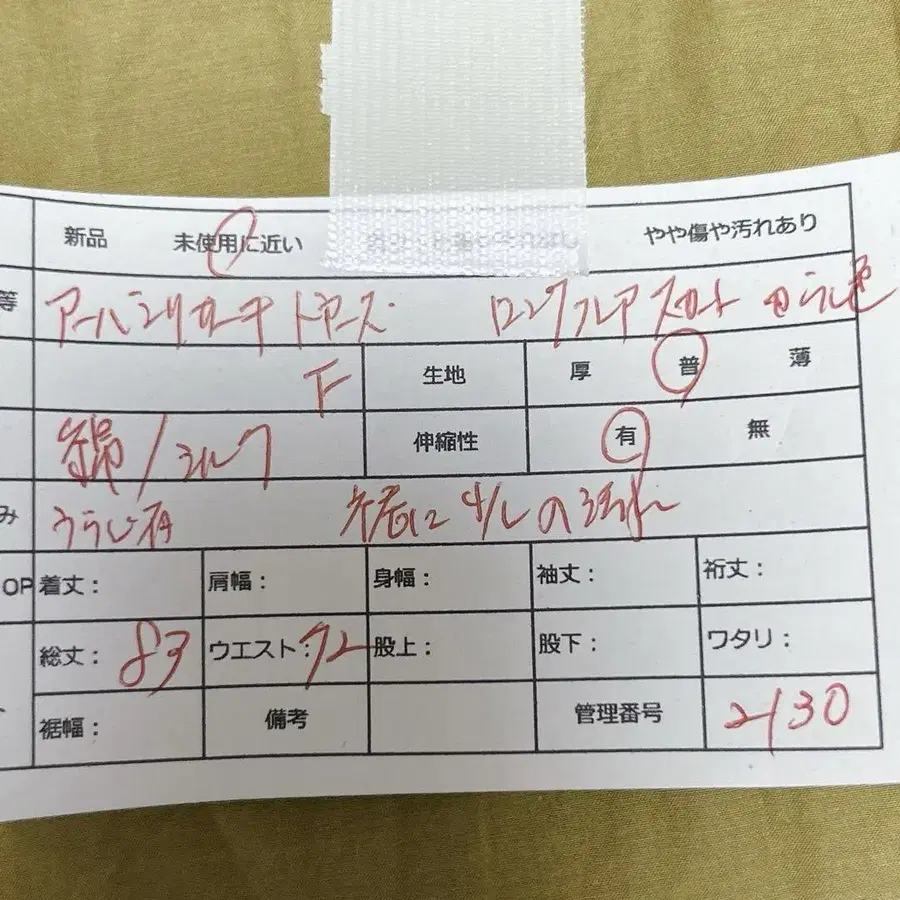 新品 未使用に近い やや傷や汚れあり
等 アーバンリサーチ ドアーズ ロングフレアスカート からし色
F 生地 厚 普 薄
綿/シルク 伸縮性 有 無
み うらじ有 少しの汚れ
OP 着丈: 肩幅: 身幅: 袖丈: 裄丈:
総丈: 83 ウエスト: 72 股上: 股下: ワタリ:
裾幅: 備考 管理番号 2130